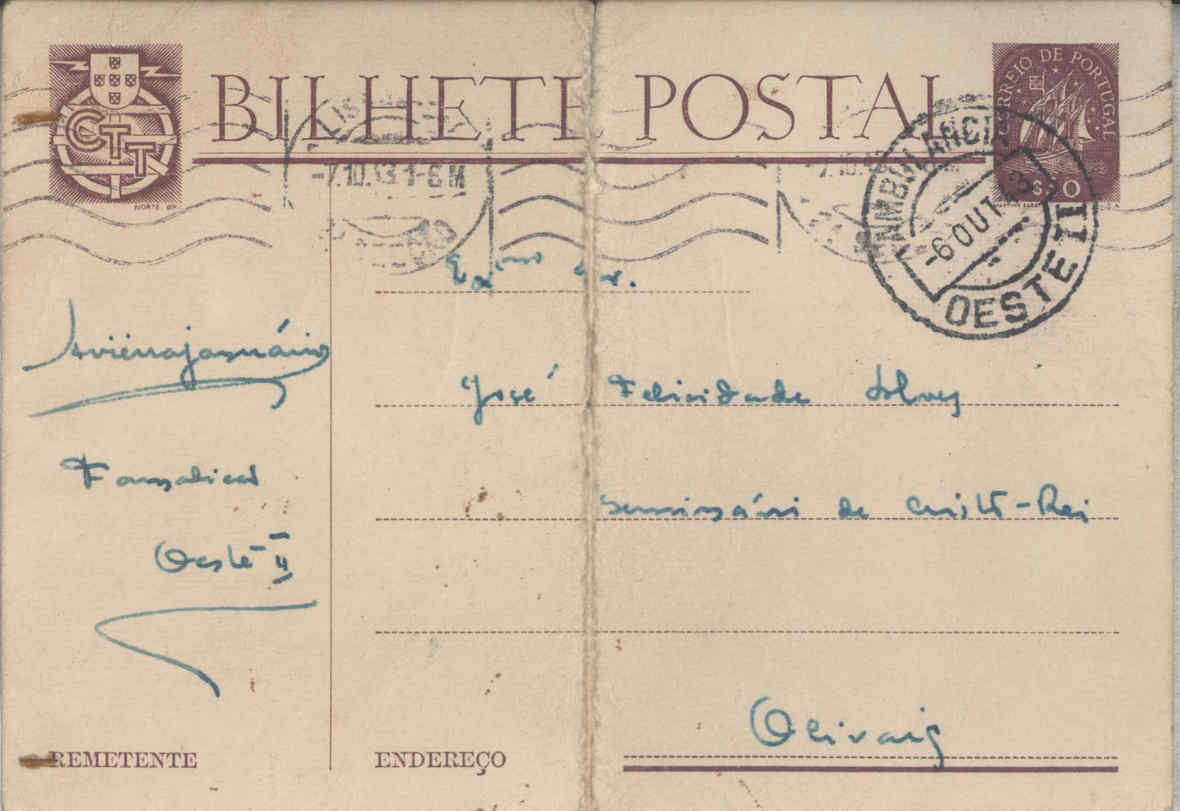 CTT
NORTE GR.
BILHETE POSTAL
CORREIO DE PORTUGAL
LIS
-7.10.43.1-6M
-7.10.4
AMBULANCIA
-6 OUT 43
OESTE II
Exmo Sr.
José Felicidade Alves
Seminário de Cristo-Rei
Olivais
Oeste II
REMETENTE
ENDEREÇO